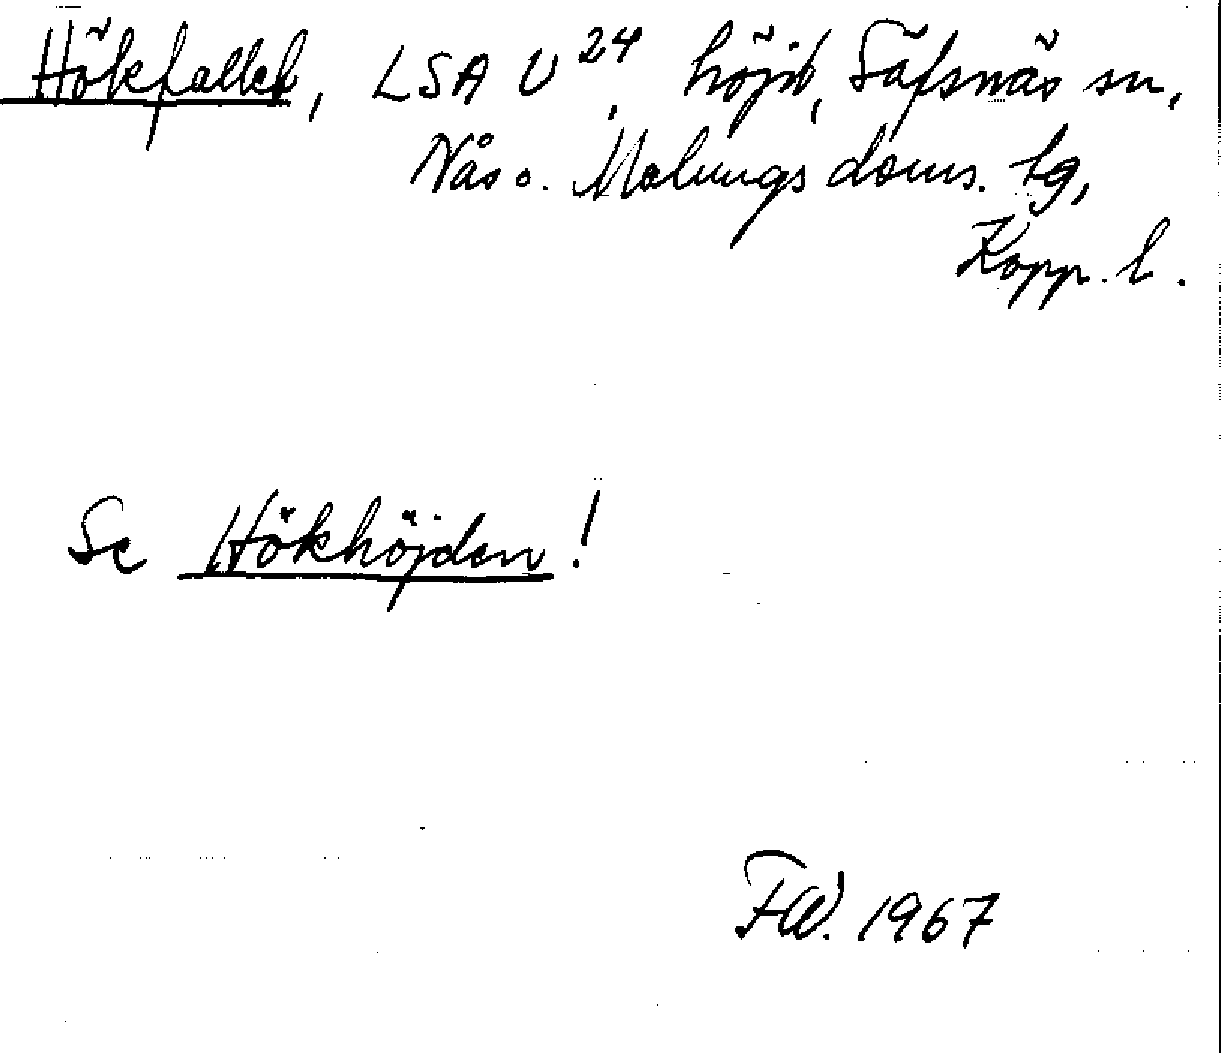 Hökfallet, LSA U 24, höjd, Säfsnäs sn,
Nås o. Malungs doms. tg,
Kopp. l.
Se Hökhöjden!
FW. 1967